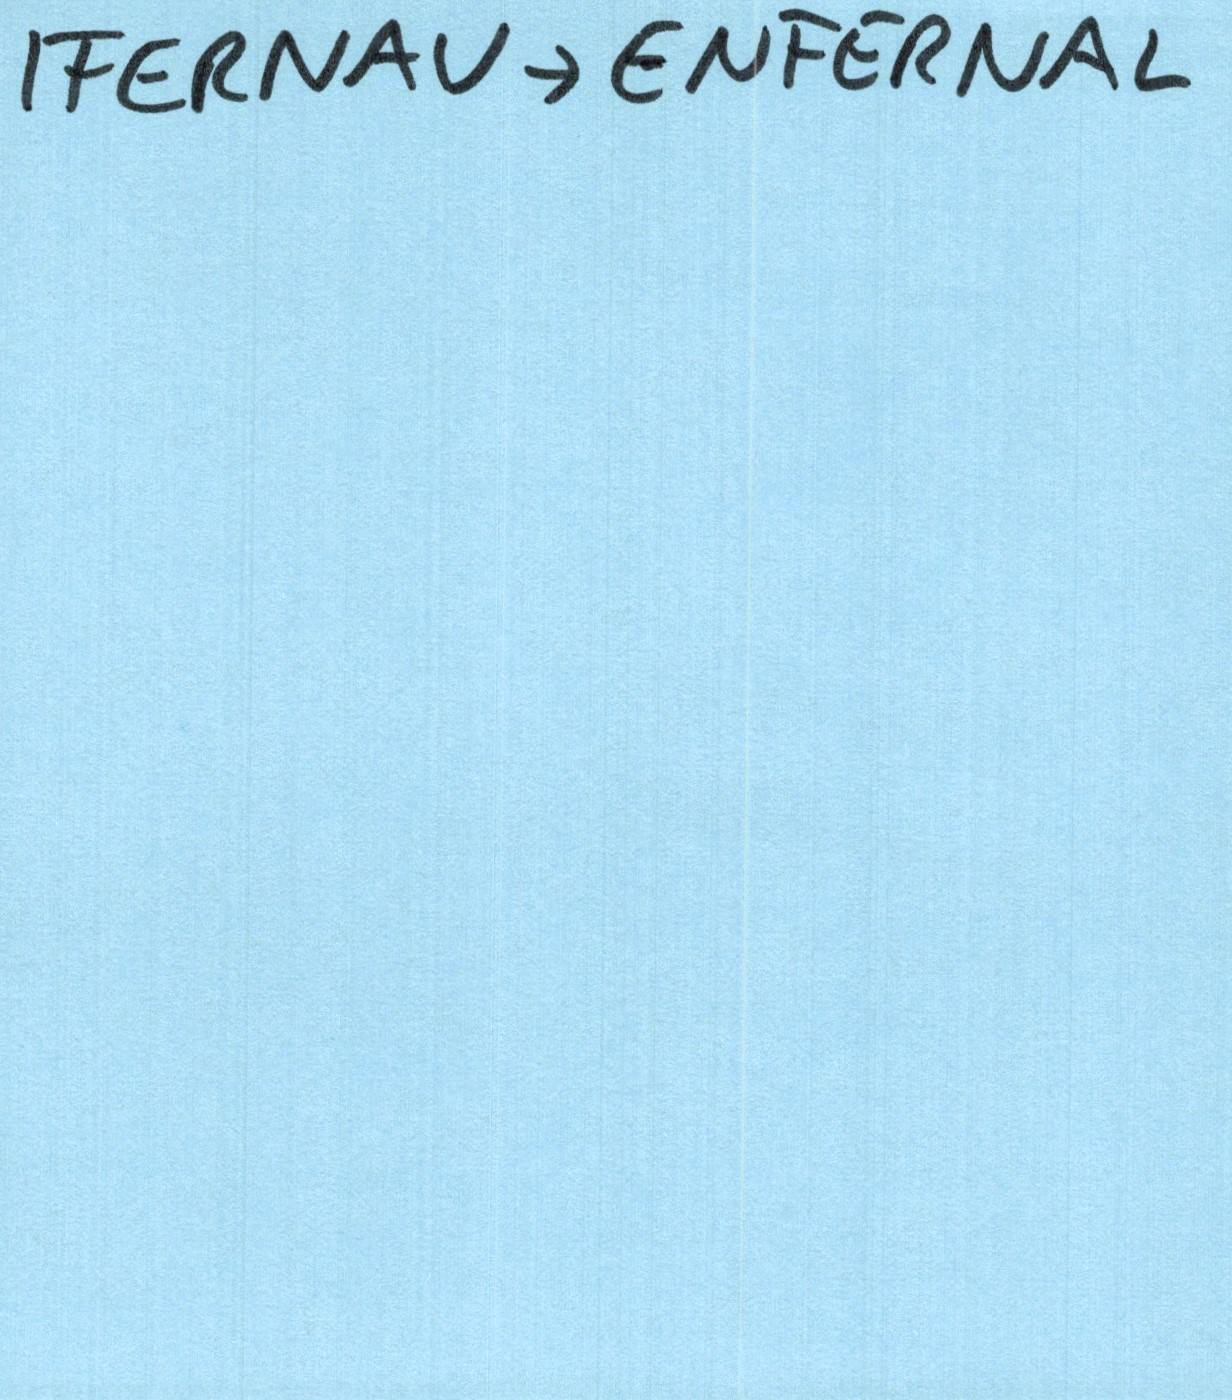 IFERNAU → ENFERNAL